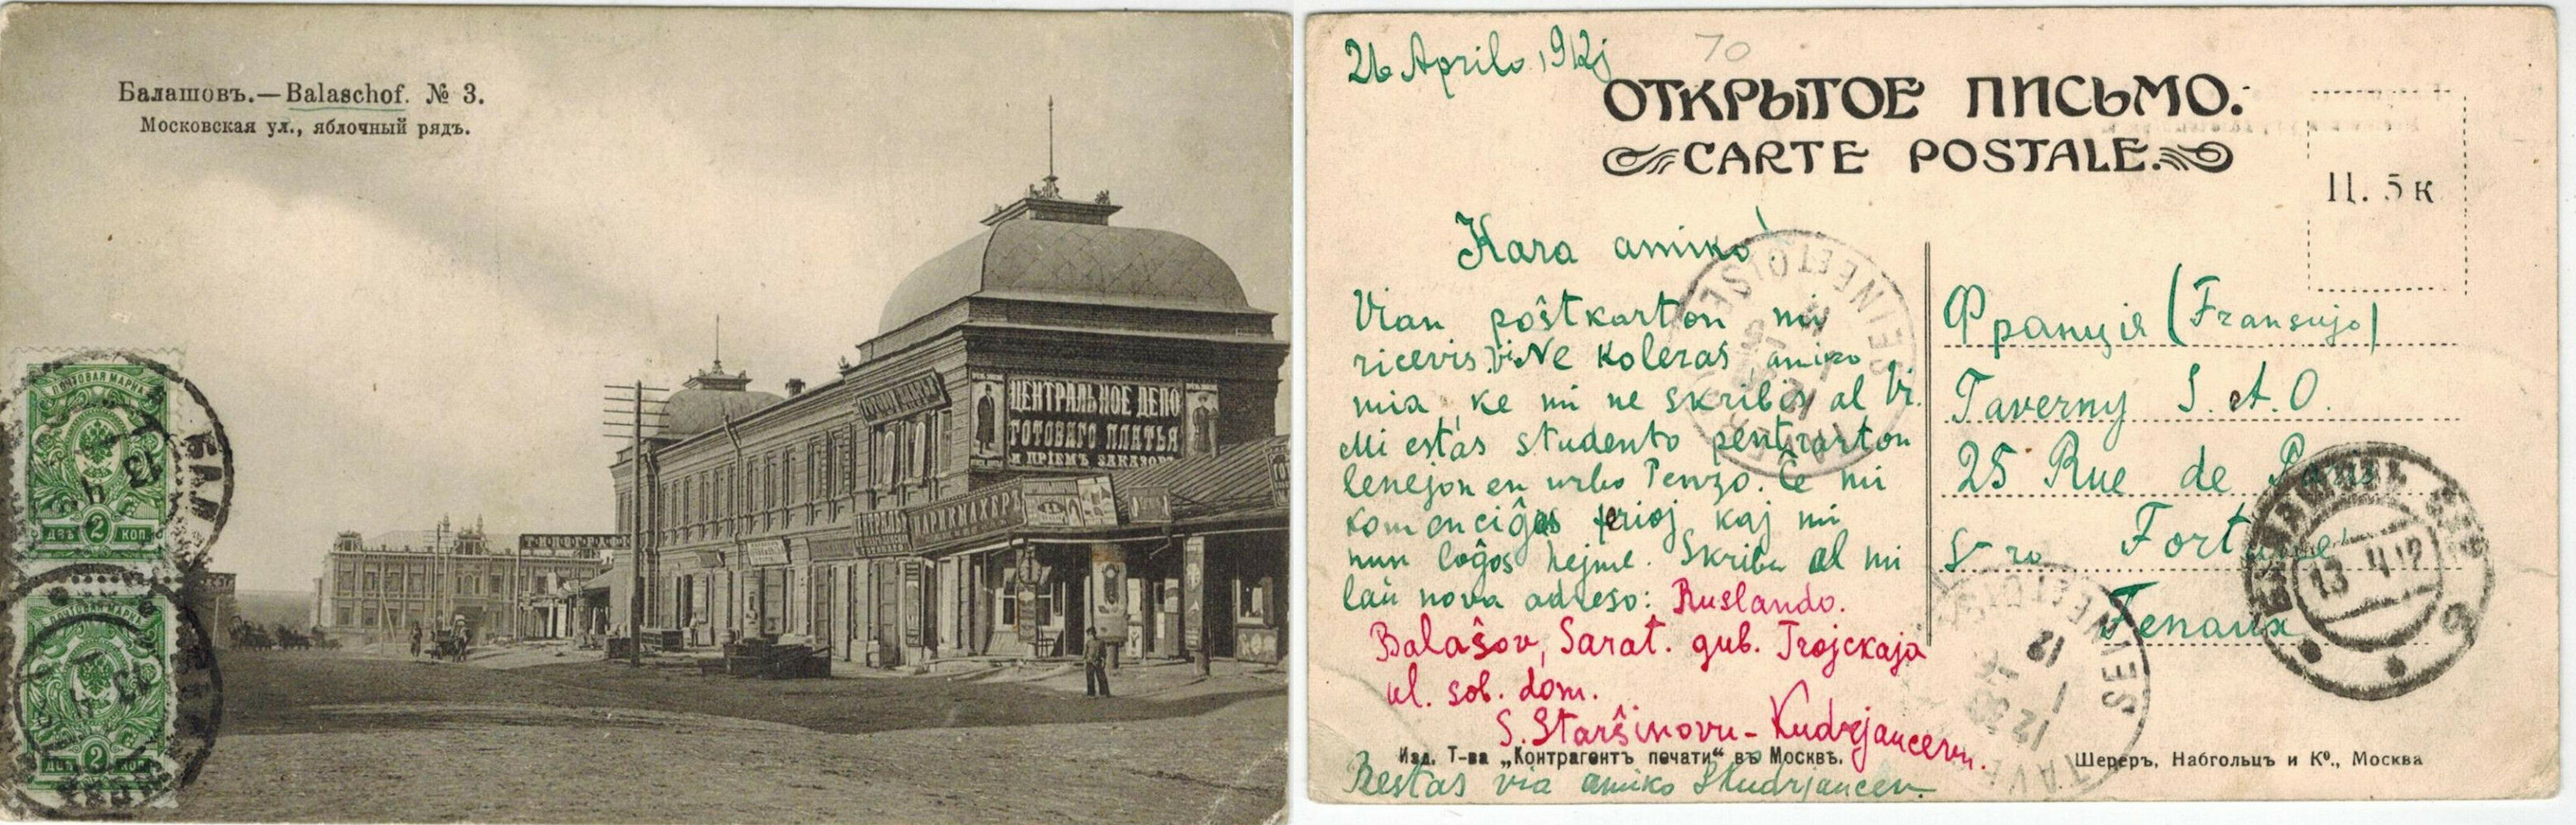 Балашовъ.—Balaschof. № 3.
Московская ул., яблочный рядъ.
ЦЕНТРАЛЬНОЕ ДЕПО
ГОТОВАГО ПЛАТЬЯ
и ПРІЕМЪ ЗАКАЗОВЪ
ПАРИКМАХЕРЪ
ПОЧТОВАЯ МАРКА
13
4
ДВѢ 2 КОП.
ПОЧТОВАЯ МАРКА
13
4
ДВѢ 2 КОП.
26 Aprilo 1912j
70
ОТКРЫТОЕ ПИСЬМО.
CARTE POSTALE.
Ц. 5 к
Kara amiko!
Vian poŝtkarton mi
ricevis. Vi Ne koleras, amiko
mia, ke mi ne skribis al Vi.
Mi estas studento pentrarton
lernejon en urbo Penzo. Ĉe mi
komenciĝas ferioj kaj mi
nun loĝos hejme. Skribu al mi
laŭ nova adreso: Ruslando.
Balaŝov, Sarat. gub. Trojckaja
ul. sob. dom.
S. Starŝinovu-Kudrjavcevu.
Restas via amiko SKudrjavcev
Франція (Fransujo)
Taverny S. et. O.
25 Rue de Paris
S-ro Fortuné
Fenaux
13 4 12
SEINE ET OISE
TAVERNY
SEINE ET OISE
12
Изд. Т-ва „Контрагентъ печати“ въ Москвѣ.
Шереръ, Набгольцъ и Ко., Москва